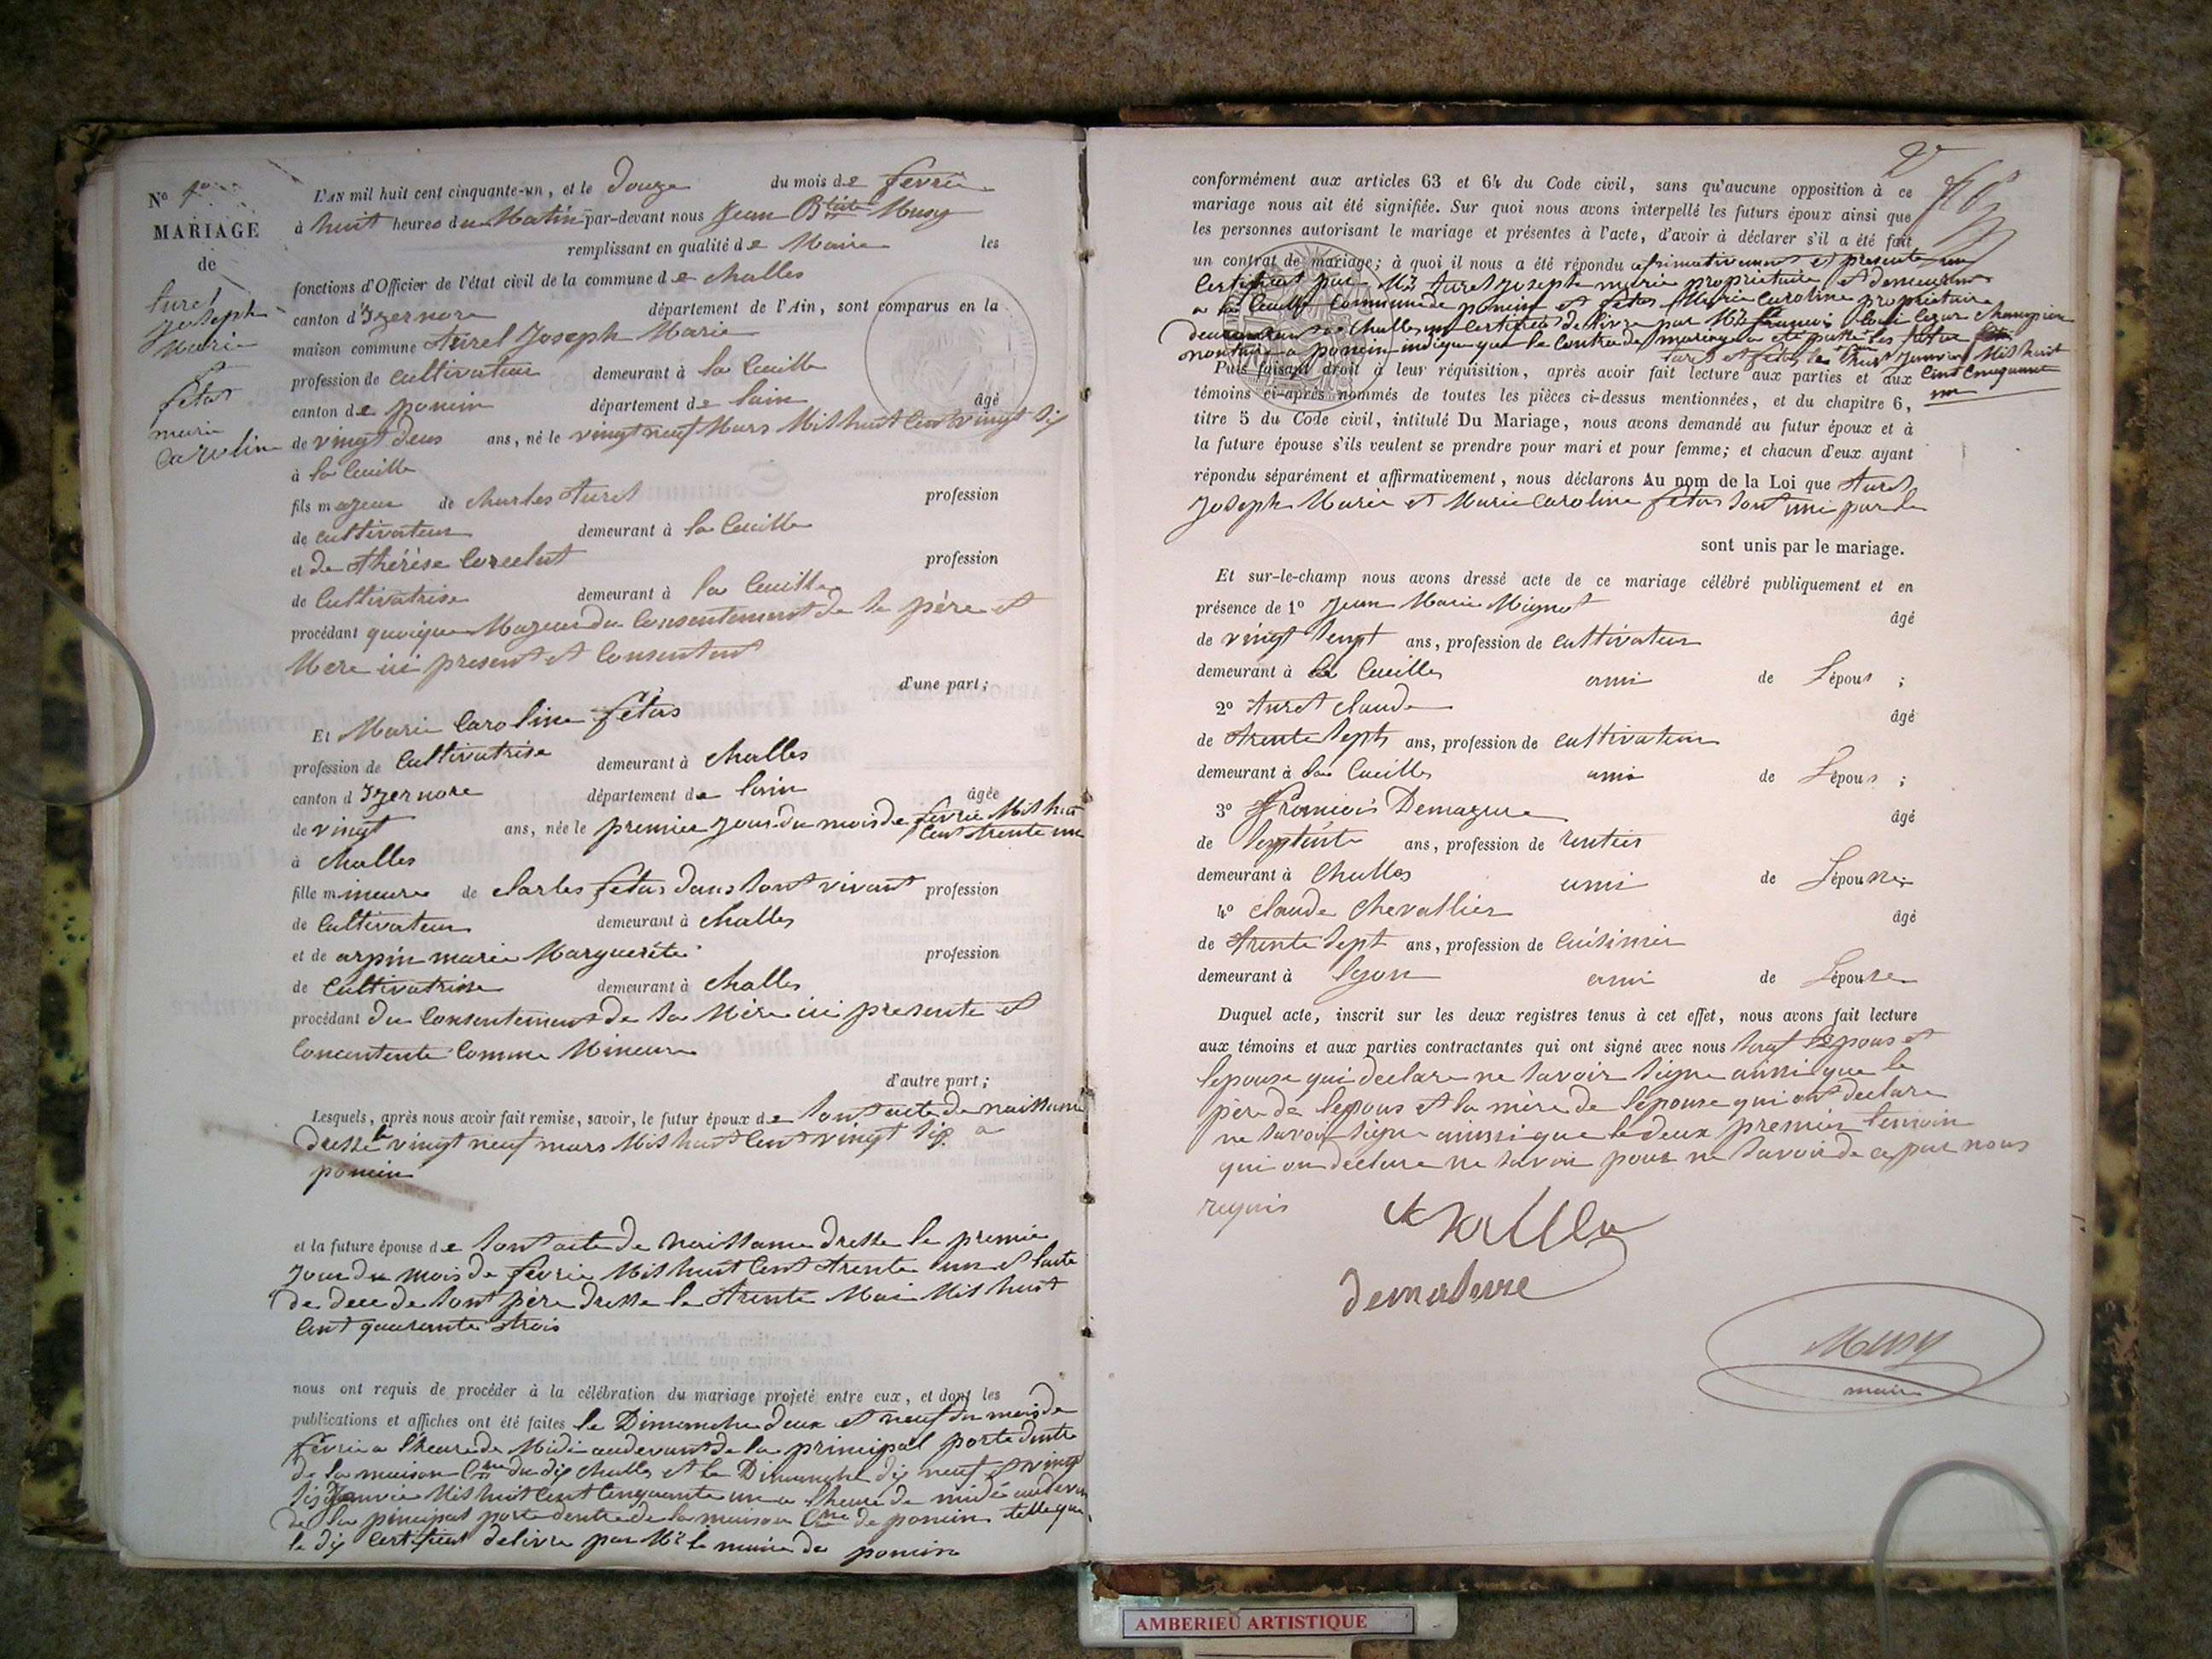 No 1er
MARIAGE
de
turel
Joseph
Marie
et
fétas
marie
Caroline
L'AN mil huit cent cinquante-un, et le douze du mois de fevrie
à huit heures du Matin par-devant nous Jean Btiste Musy
remplissant en qualité de Maire les
fonctions d'Officier de l'état civil de la commune de challes
canton d'Izernore département de l'Ain, sont comparus en la
maison commune turel Joseph Marie
profession de cultivateur demeurant à la Cueille
canton de poncin département de lain âgé
de vingt deus ans, né le vingt neuf Mars Mil huit Cent vingt dix
à la Cueille
fils majeur de charles turel profession
de cultivateur demeurant à la Cueille
et de thérèse profession
de Cultivatrise demeurant à la Cueille
procédant quoique Majeur du Consentement de se père et
Mere ici present et Consentent
d'une part;
Et Marie Caroline fétas
profession de Cultivatrise demeurant à challes
canton d Izernore département de lain âgée
de vingt ans, née le premier jour du mois de fevrie Mil huit
Cent trente un
à challes
fille mineure de charles fétas dans sont vivant profession
de Cultivateur demeurant à challes
et de arpin marie Marguerite profession
de Cultivatrisse demeurant à challes
procédant du Consentement de sa Mère ici presente et
Concentente Comme Mineure
d'autre part;
Lesquels, après nous avoir fait remise, savoir, le futur époux de sont acte de naissance
dresse le vingt neuf mars Mil huit Cent vingt dix a
poncin
et la future épouse de sont acte de naissance dresse le premie
jour du mois de fevrie Mil huit Cent trente un et lacte
de dece de sont père dresse le trente Mai Mil huit
Cent quarante trois
nous ont requis de procéder à la célébration du mariage projeté entre eux, et dont les
publications et affiches ont été faites le Dimanche deux et neuf du mois de
fevrie a lheure de Midi au devant de la principal porte dentre
de la maison Cne du dis challes et le Dimanche dis neuf et vingt
sis Janvie Mil huit Cent Cinquante un a lheure de midi au devan
de la principal porte dentre de la maison Cne de poncin telle que
le dis Certificat delivre par Mr le maire de poncin
2e
conformément aux articles 63 et 64 du Code civil, sans qu'aucune opposition à ce
mariage nous ait été signifiée. Sur quoi nous avons interpellé les futurs époux ainsi que
les personnes autorisant le mariage et présentes à l'acte, d'avoir à déclarer s'il a été fait
un contrat de mariage; à quoi il nous a été répondu afirmativement et presente un
Certificat par Mr turel Joseph marie propriétaire et demeurant
a la Cueille Commune de poncin et fétas Marie Caroline propriétaire
demeurant a Challes un Certificat delivre par Mr francois Cesar Champion
nontaire a poncin indique que le Contra de mariage a été passé les futur
turel et fétas le huit Janvier Mil huit
Cent Cinquante
un
Puis faisant droit à leur réquisition, après avoir fait lecture aux parties et aux
témoins ci-après nommés de toutes les pièces ci-dessus mentionnées, et du chapitre 6,
titre 5 du Code civil, intitulé Du Mariage, nous avons demandé au futur époux et à
la future épouse s'ils veulent se prendre pour mari et pour femme; et chacun d'eux ayant
répondu séparément et affirmativement, nous déclarons Au nom de la Loi que turel
Joseph Marie et Marie Caroline fétas sont uni par le
sont unis par le mariage.
Et sur-le-champ nous avons dressé acte de ce mariage célébré publiquement et en
présence de 1º Jean Marie Mignot âgé
de vingt sept ans, profession de cultivateur
demeurant à la Cueilles ami de Lépous ;
2º turel claude âgé
de trente sept ans, profession de cultivateur
demeurant à la Cueilles ami de Lépous ;
3º francois Demazure âgé
de septente ans, profession de rentier
demeurant à Challes ami de Lépouse;
4º claude chevallier âgé
de trente sept ans, profession de cuisinier
demeurant à lyon ami de Lépouse
Duquel acte, inscrit sur les deux registres tenus à cet effet, nous avons fait lecture
aux témoins et aux parties contractantes qui ont signé avec nous sauf lépous et
lépouse qui declare ne savoir signe ainsi que le
père de lepous et la mère de lépouse qui ont declare
ne savoir signe ainsi que le deux premier temoin
qui on declare ne savoir pour ne savoir de ce par nous
requis
demasure
Musy
maire
AMBERIEU ARTISTIQUE